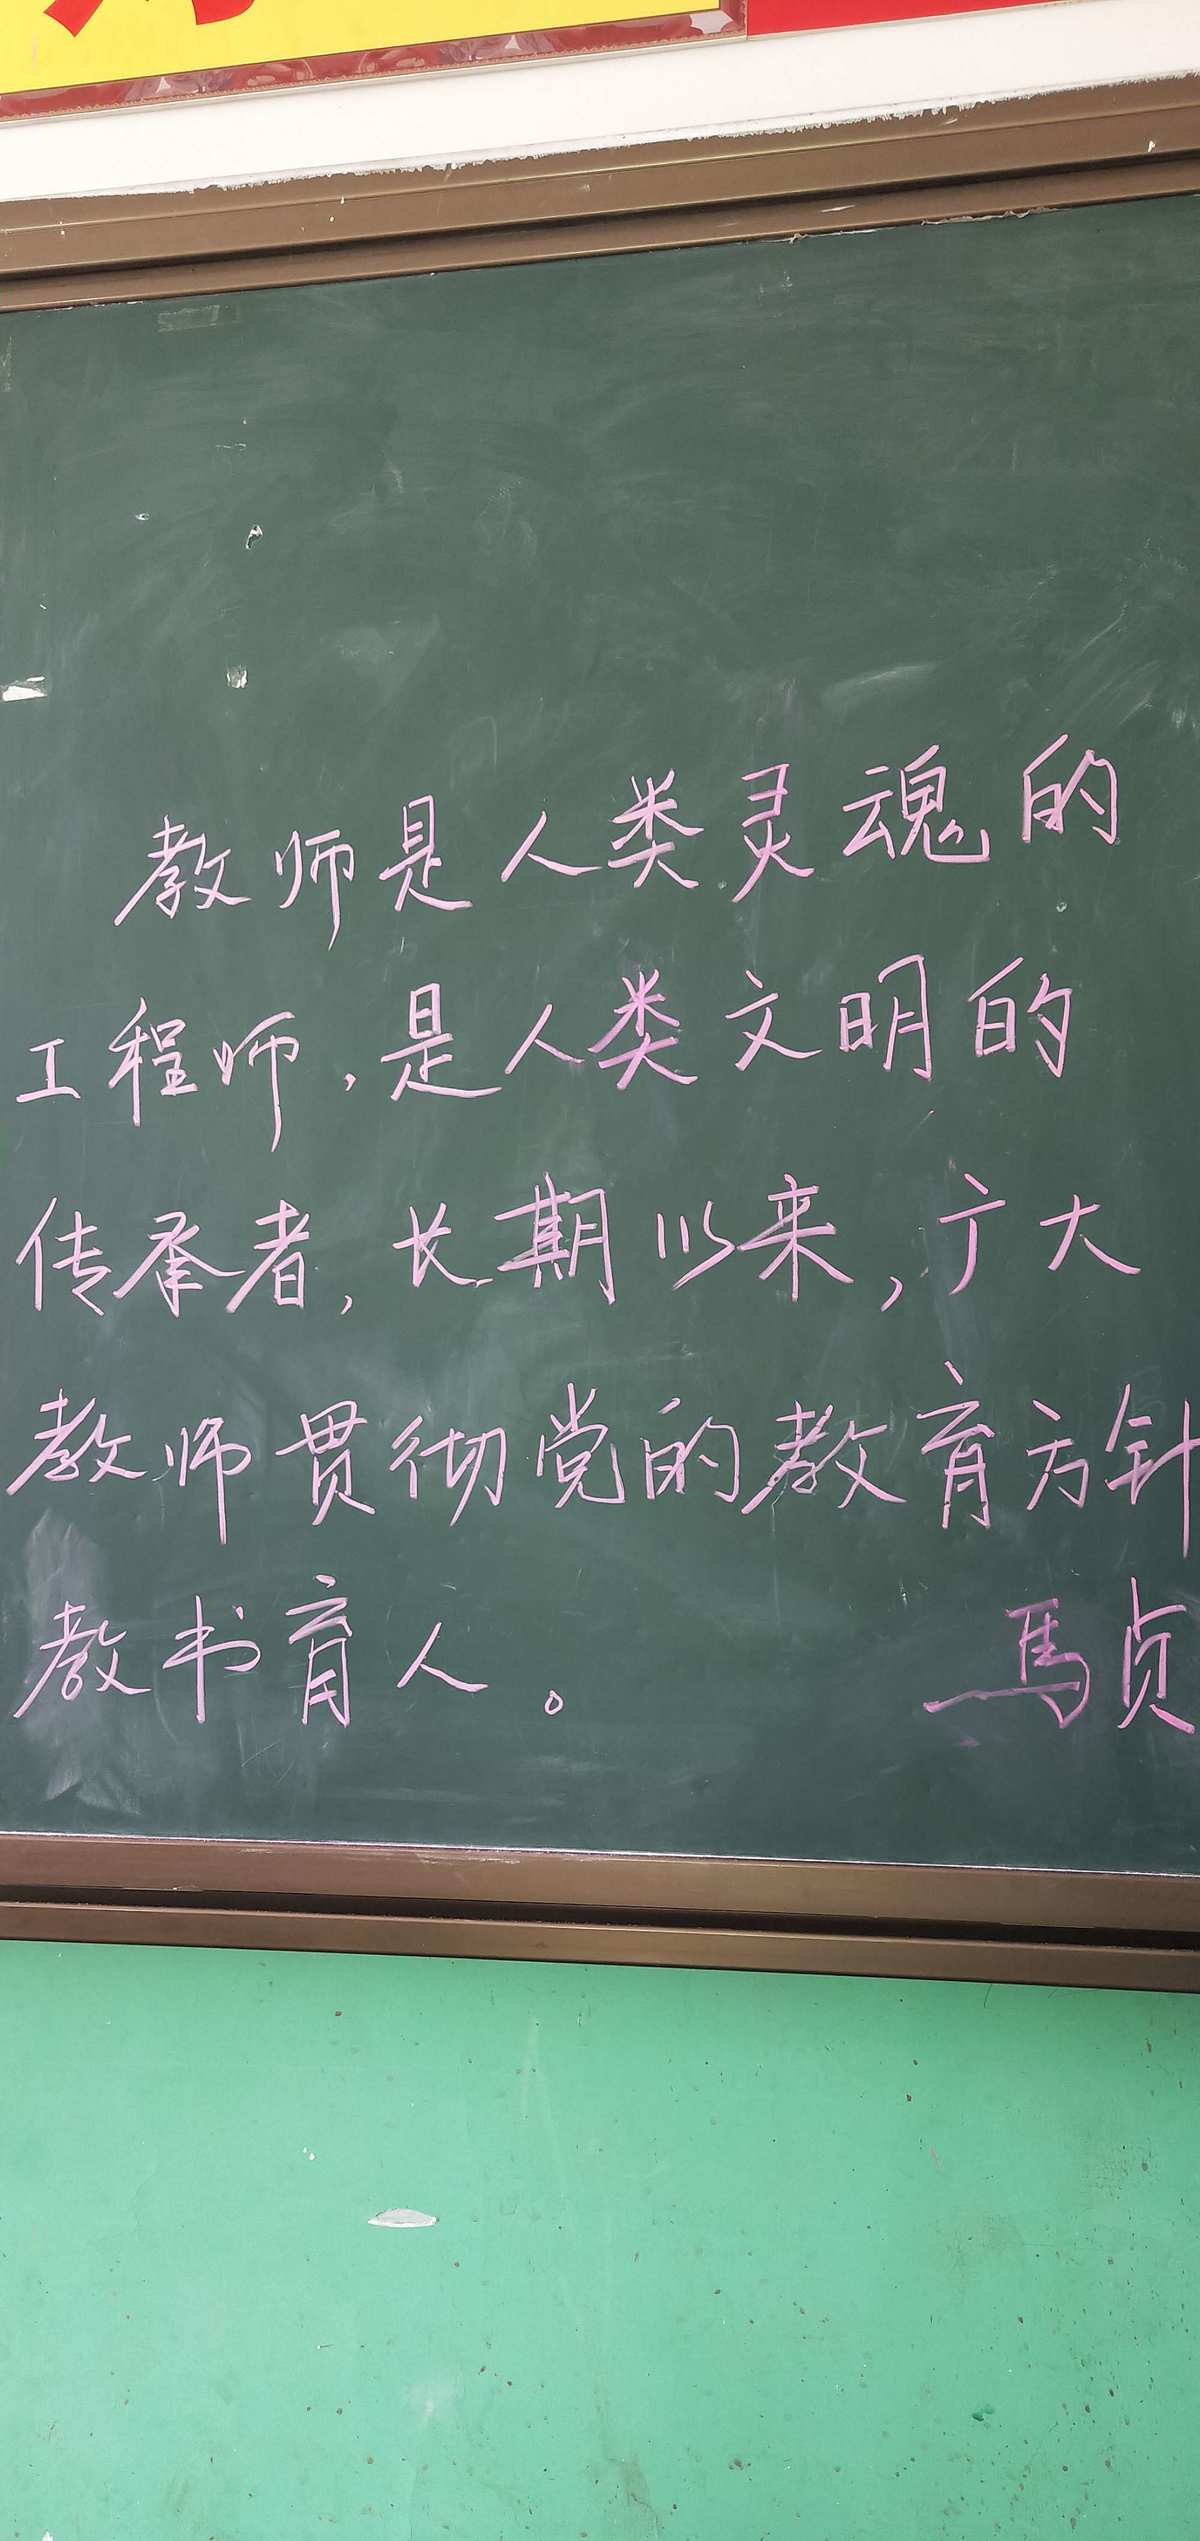 教师是人类灵魂的
工程师,是人类文明的
传承者,长期以来,广大
教师贯彻党的教育方针
教书育人。 馬贞